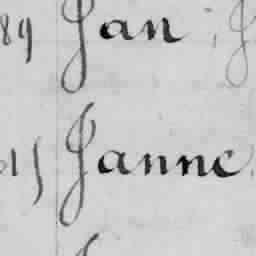 89 Jan
Janne